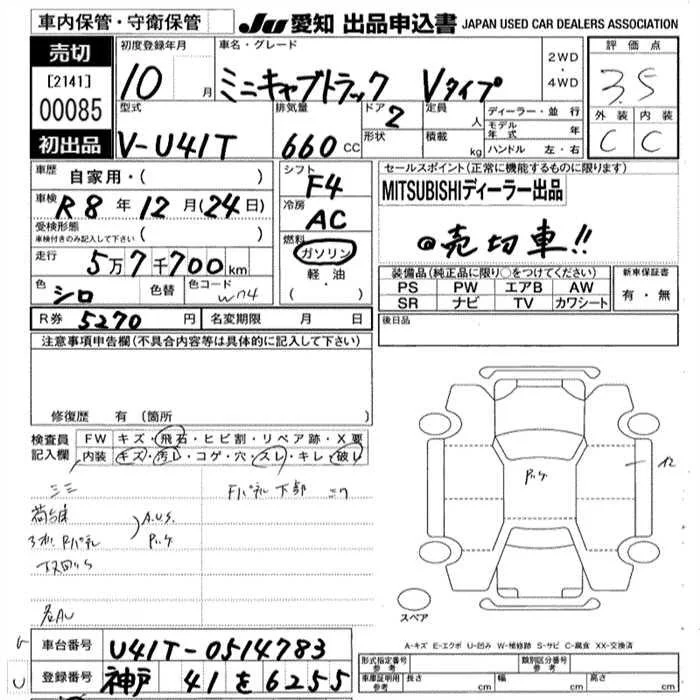 車内保管・守衛保管
JU 愛知 出品申込書 JAPAN USED CAR DEALERS ASSOCIATION
売切
[2141]
00085
初出品
初度登録年月
10 月
車名・グレード
ミニキャブトラック Vタイプ
2WD
・
4WD
評価点
3.5
外装 内装
C C
型式
V-U41T
排気量
660 CC
ドア
2
形状
定員
人
積載
kg
ディーラー・並行
モデル年式 年
ハンドル 左・右
車歴
自家用・( )
車検
R8年12月(24日)
受検形態
車検付きのみ記入して下さい ( )
走行
5万7千700km
色
シロ
色替
色コード
W74
シフト
F4
冷房
AC
燃料
ガソリン
軽油
( ・ )
セールスポイント(正常に機能するものに限ります)
MITSUBISHIディーラー出品
◎売切車!!
装備品(純正品に限り○をつけてください)
PS PW エアB AW
SR ナビ TV カワシート
新車保証書
有・無
R券 5270 円
名変期限 月 日
後日品
注意事項申告欄(不具合内容等は具体的に記入して下さい)
修復歴 有(箇所
検査員記入欄
FW キズ・飛石・ヒビ割・リペア跡・X要
内装 キズ・汚レ・コゲ・穴・スレ・キレ・破レ
Fパネル下部
荷台
A.U.S.
スペア
A-キズ E-エクボ U-凹み W-補修跡 S-サビ C-腐食 XX-交換済
車台番号 U41T-0514783
登録番号 神戸 41 を 6255
型式指定番号 参考
類別区分番号 参考
車庫証明用 参考
長さ cm
幅 cm
高さ cm